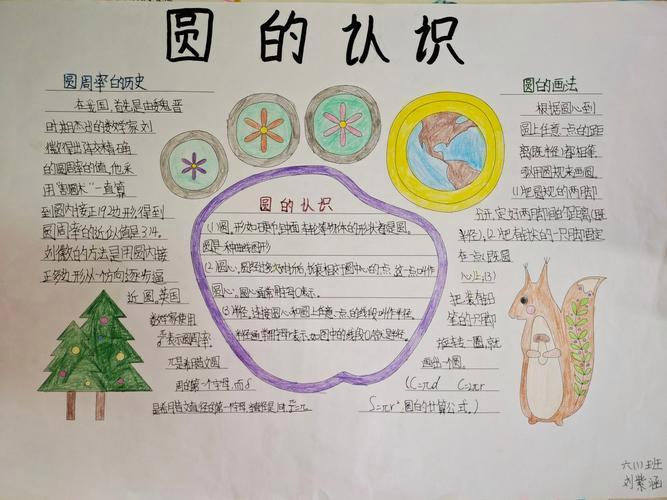 圆的认识
圆周率的历史
在我国,首先是由魏晋
时期杰出的数学家刘
徽得出较精确
的圆周率的值,他采
用"割圆术"一直算
到圆内接正192边形得到
圆周率的近似值是3.14.
刘徽的方法是用圆内接
正多边形从一个方向逐步逼
近圆,英国
数学家使用
表示圆周率.
π是希腊文圆
周的第一个字母,而δ
是希腊文直径的第一个字母,
圆的认识
(1)圆,形如车轮物体的形状都是圆.
圆是一种曲线图形
(2)圆心,圆中心的点 这一点叫作
圆心,圆心通常用字母O表示.
(3)半径,连接圆心和圆上任意一点的线段叫作半径.
半径通常用字母r表示,如图中的线段OA就是半径.
圆的画法
根据圆心到
圆上任意一点的距
离(既半径)都相等
用圆规来画圆
(1)把圆规的两脚
分开,定好两脚间的距离(既
半径),(2)把有针尖的一只脚固定
在一点(既圆
心)上,(3)
把装有铅
笔的只脚
旋转一圈,就
画出一个圆.
(C=πd C=πr
S=πr² 圆的计算公式.)
六(1)班
刘紫涵